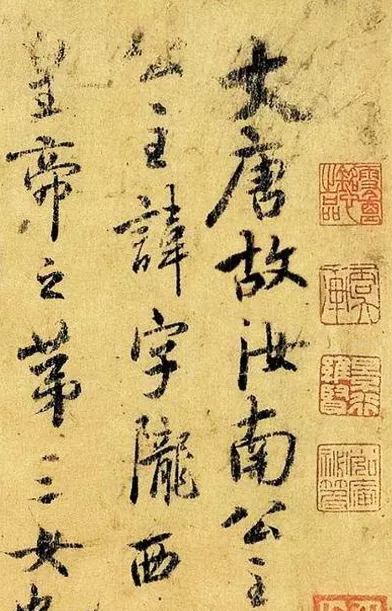 大唐故汝南公主
公主諱字隴西
皇帝之第三女也